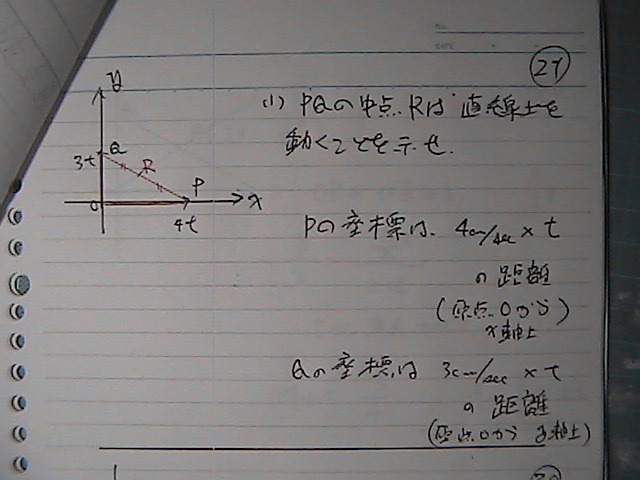 No.
DATE
29
y
(1) PQの中点Rは直線上を
動くことを示せ.
3t
Q
R
P
0
4t
x
Pの座標は、4cm/sec × t
の距離
(原点0から
x軸上)
Qの座標は 3cm/sec × t
の距離
(原点0から y軸上)